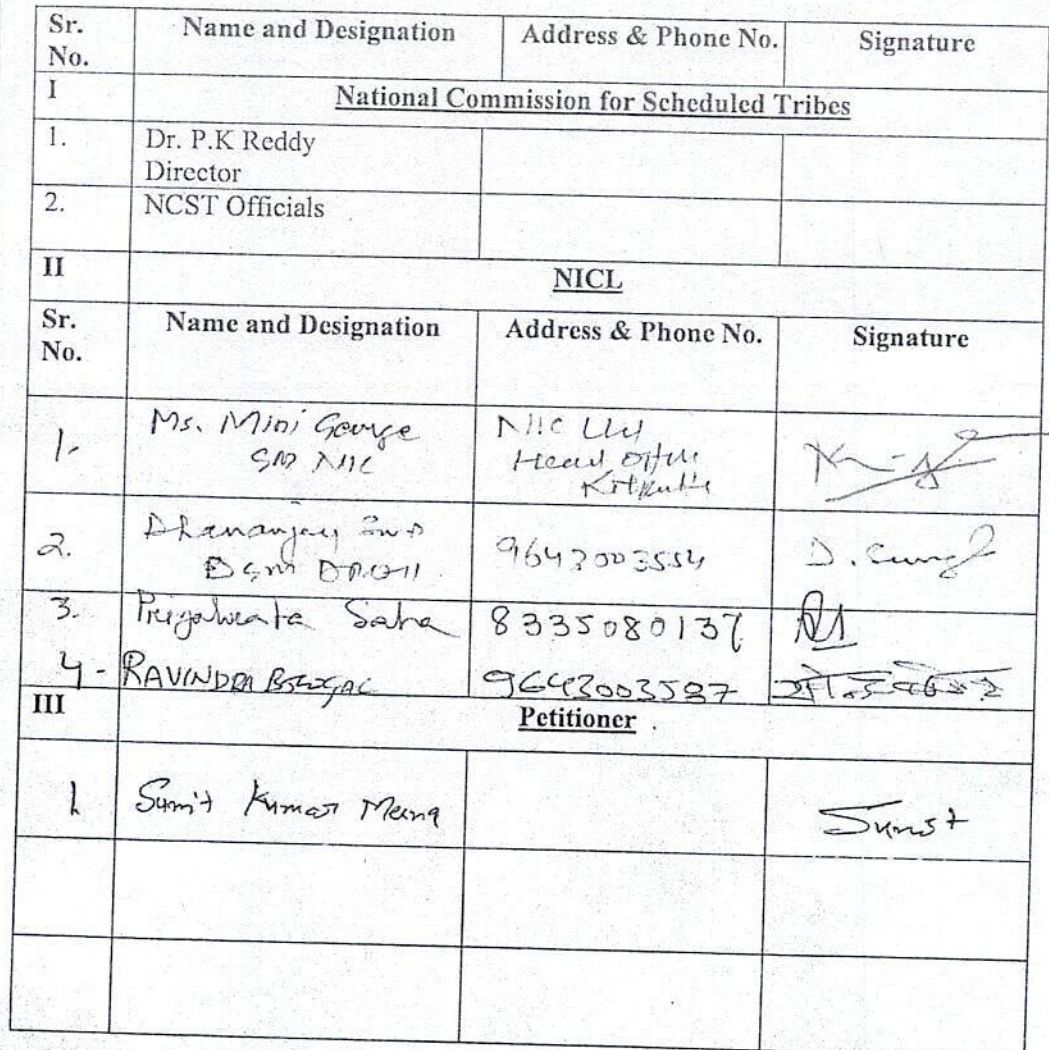 Sr. No. Name and Designation Address & Phone No. Signature
I National Commission for Scheduled Tribes
1. Dr. P.K Reddy
Director
2. NCST Officials
II NICL
Sr. No. Name and Designation Address & Phone No. Signature
1. Ms. Mini George
Head
2. Dhananjay 9643003554 D.
3. Saha 8335080137
4 - RAVINDRA
III Petitioner
1. Sumit Kumar Meena Sumit